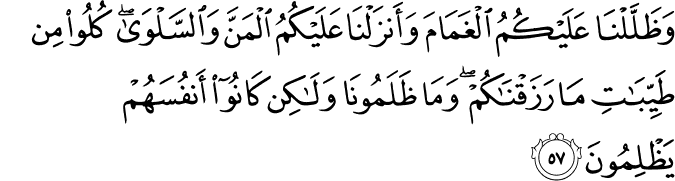 وَظَلَّلْنَا عَلَيْكُمُ ٱلْغَمَامَ وَأَنزَلْنَا عَلَيْكُمُ ٱلْمَنَّ وَٱلسَّلْوَىٰ ۖ كُلُوا۟ مِن
طَيِّبَـٰتِ مَا رَزَقْنَـٰكُمْ ۖ وَمَا ظَلَمُونَا وَلَـٰكِن كَانُوٓا۟ أَنفُسَهُمْ
يَظْلِمُونَ ٥٧